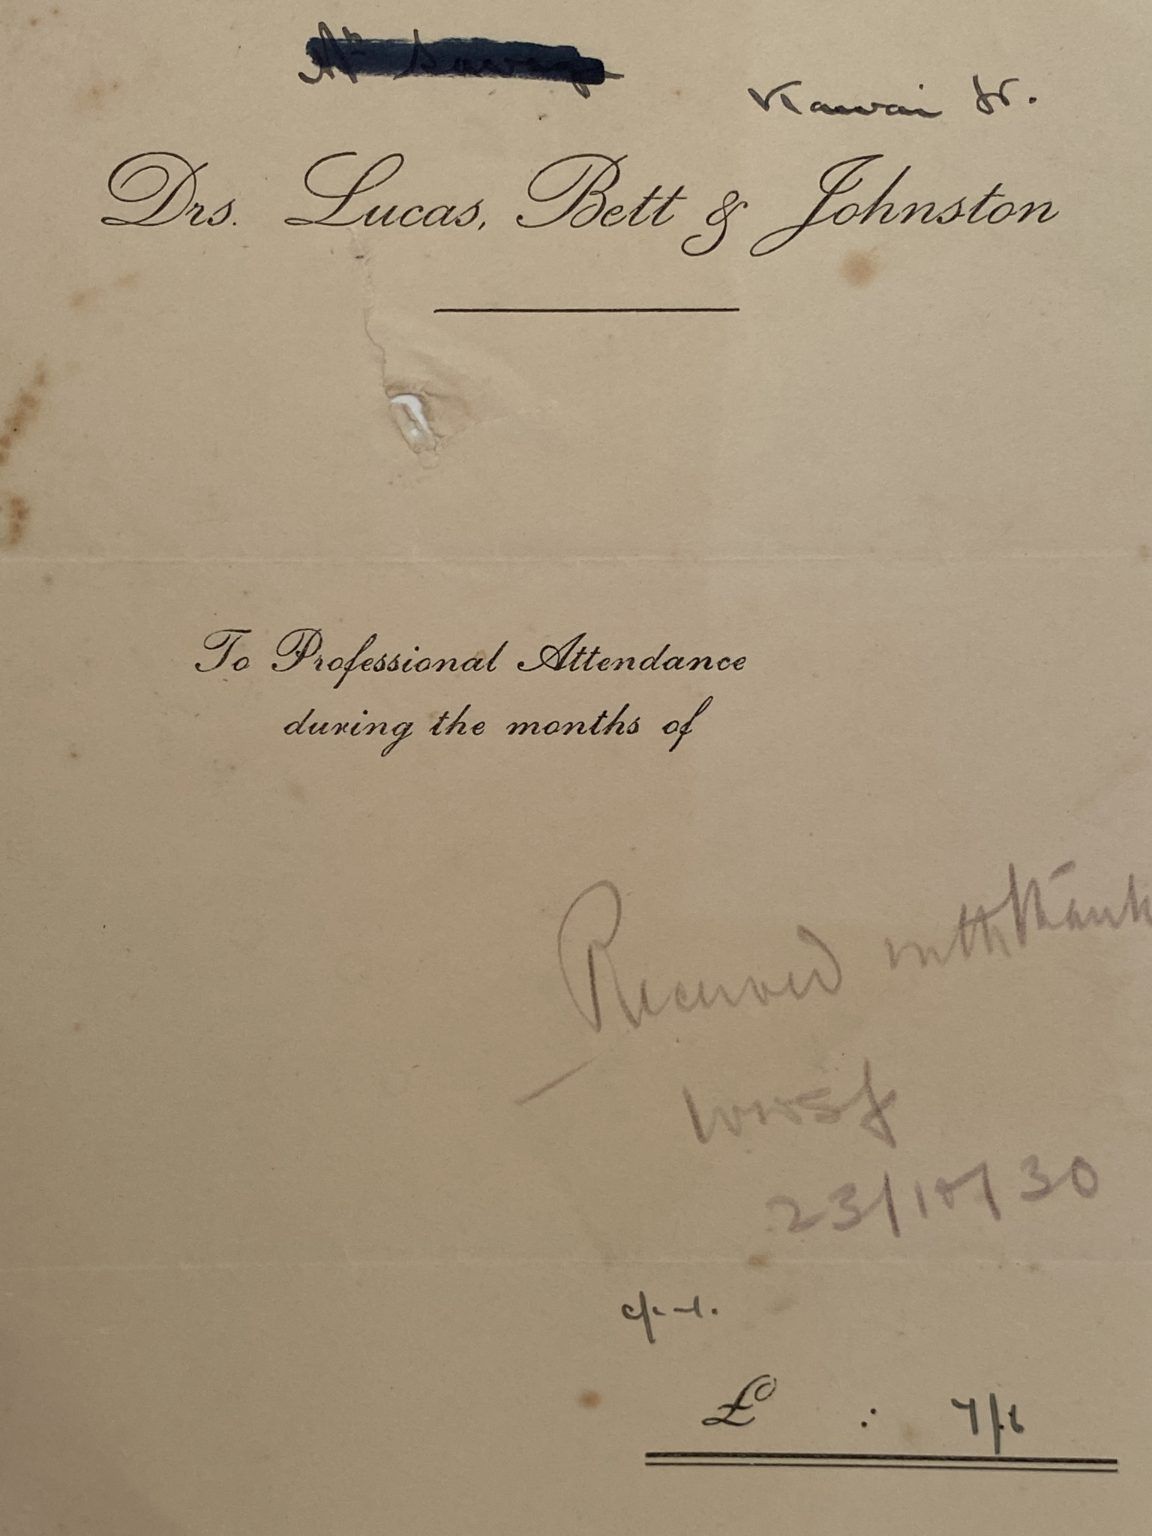 Kawai St.
Drs. Lucas, Bett & Johnston
To Professional Attendance
during the months of
Received with thank
23/10/30
£ : 7/6